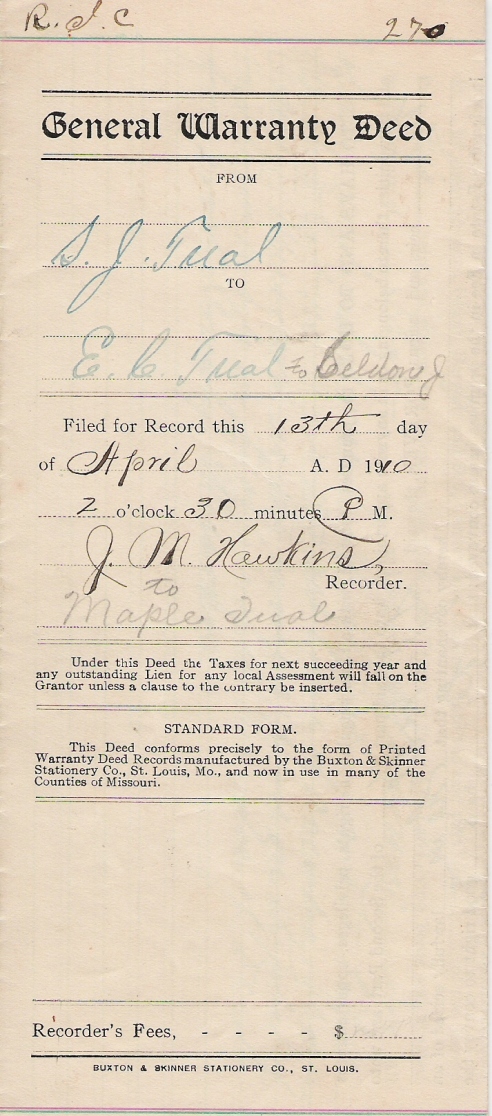 R. J. C 270
General Warranty Deed
FROM
S. J. Tual
TO
E. C. Tual to Celdon J
Filed for Record this 13th day
of April A. D 1910
2 o'clock 30 minutes P M.
J. M. Hawkins,
Recorder.
to
Maple Tual
Under this Deed the Taxes for next succeeding year and
any outstanding Lien for any local Assessment will fall on the
Grantor unless a clause to the contrary be inserted.
STANDARD FORM.
This Deed conforms precisely to the form of Printed
Warranty Deed Records manufactured by the Buxton & Skinner
Stationery Co., St. Louis, Mo., and now in use in many of the
Counties of Missouri.
Recorder's Fees, - - - - $
BUXTON & SKINNER STATIONERY CO., ST. LOUIS.